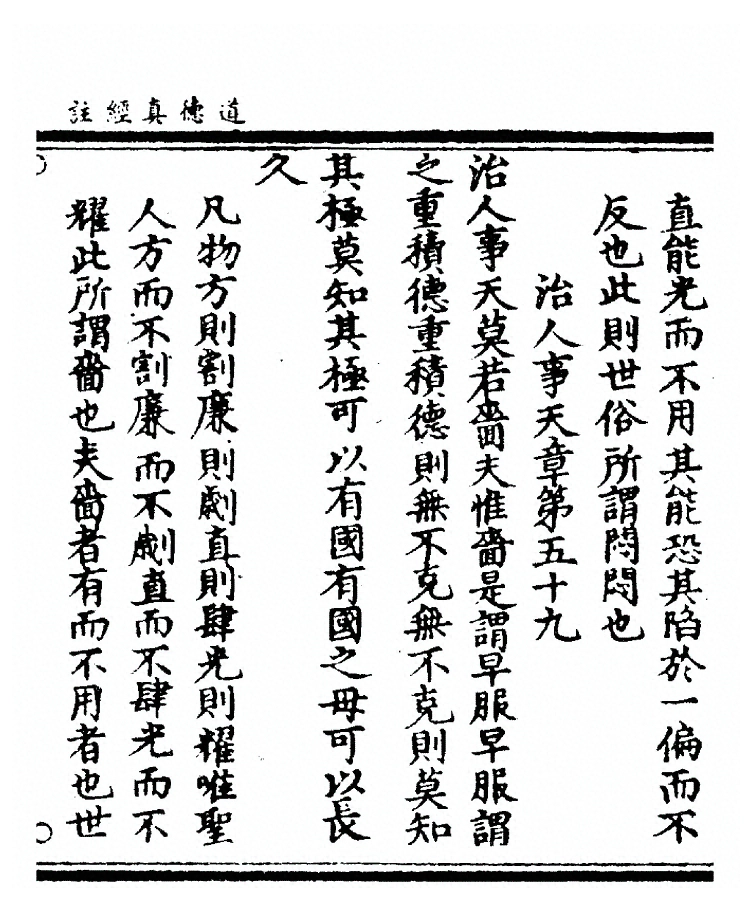 道德真經註
直能光而不用其能恐其陷於一偏而不
反也此則世俗所謂悶悶也
治人事天章第五十九
治人事天莫若嗇夫惟嗇是謂早服早服謂
之重積德重積德則無不克無不克則莫知
其極莫知其極可以有國有國之母可以長
久
凡物方則割廉則劌直則肆光則耀唯聖
人方而不割廉而不劌直而不肆光而不
耀此所謂嗇也夫嗇者有而不用者也世